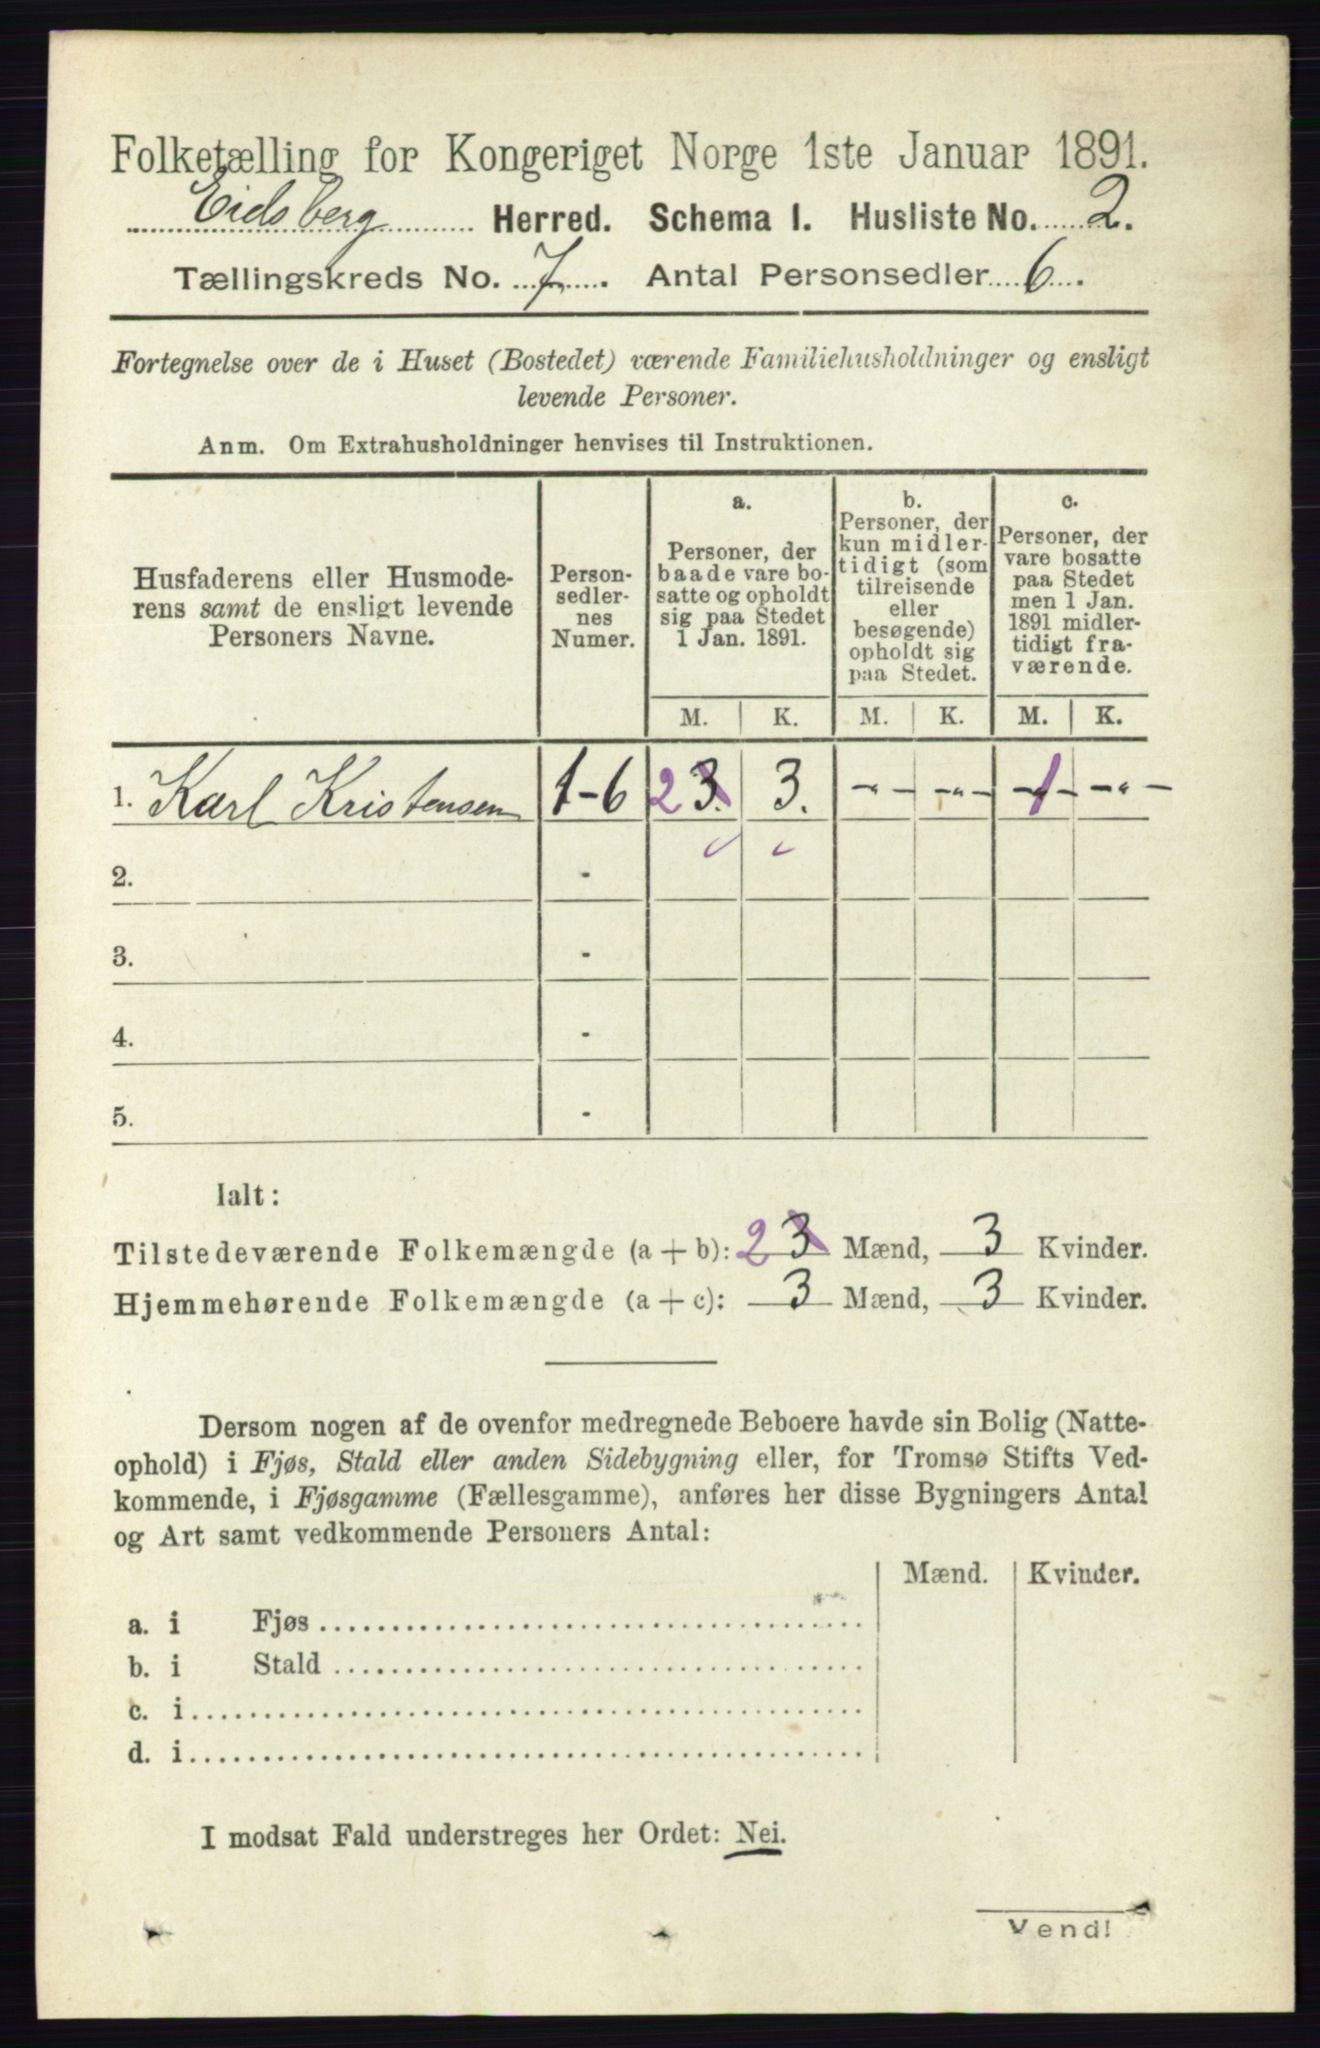 Folketælling for Kongeriget Norge 1ste Januar 1891.
Eidsberg Herred. Schema I. Husliste No. 2.
Tællingskreds No. 7. Antal Personsedler 6.
Fortegnelse over de i Huset (Bostedet) værende Familiehusholdninger og ensligt
levende Personer.
Anm. Om Extrahusholdninger henvises til Instruktionen.
Husfaderens eller Husmode-
rens samt de ensligt levende
Personers Navne.
Person-
sedler-
nes
Numer.
a.
Personer, der
baade vare bo-
satte og opholdt
sig paa Stedet
1 Jan. 1891.
b.
Personer, der
kun midler-
tidigt (som
tilreisende
eller
besøgende)
opholdt sig
paa Stedet.
c.
Personer, der
vare bosatte
paa Stedet
men 1 Jan.
1891 midler-
tidigt fra-
værende.
M. K. M. K. M. K.
1. Karl Kristensen 1-6 2 3. 3. -"- -"- 1 -"-
2. -
3. -
4. -
5. -
Ialt:
Tilstedeværende Folkemængde (a + b): 2 3 Mænd, 3 Kvinder.
Hjemmehørende Folkemængde (a + c): 3 Mænd, 3 Kvinder.
Dersom nogen af de ovenfor medregnede Beboere havde sin Bolig (Natte-
ophold) i Fjøs, Stald eller anden Sidebygning eller, for Tromsø Stifts Ved-
kommende, i Fjøsgamme (Fællesgamme), anføres her disse Bygningers Antal
og Art samt vedkommende Personers Antal:
Mænd. Kvinder.
a. i Fjøs
b. i Stald
c. i
d. i
I modsat Fald understreges her Ordet: Nei.
Vend!